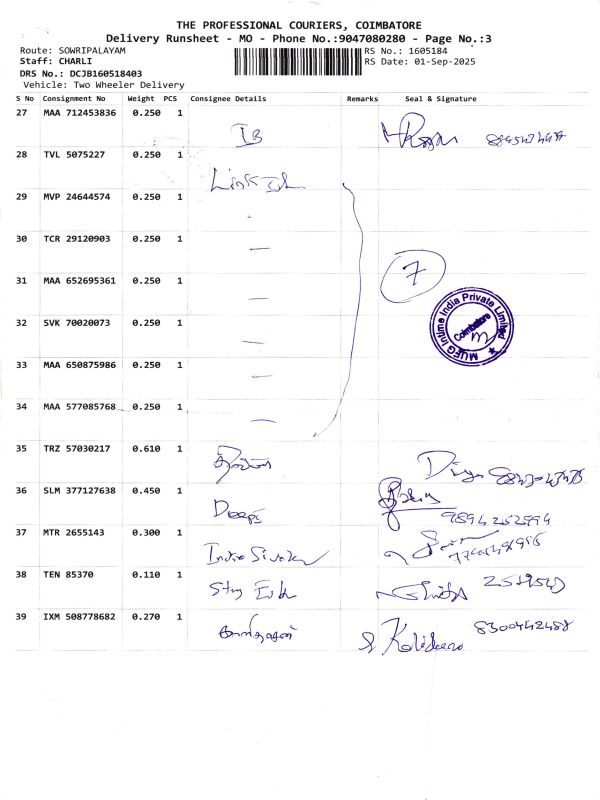 THE PROFESSIONAL COURIERS, COIMBATORE
Delivery Runsheet - MO - Phone No.:9047080280 - Page No.:3
Route: SOWRIPALAYAM RS No.: 1605184
Staff: CHARLI RS Date: 01-Sep-2025
DRS No.: DCJB160518403
Vehicle: Two Wheeler Delivery
S No Consignment No Weight PCS Consignee Details Remarks Seal & Signature
27 MAA 712453836 0.250 1
IB
28 TVL 5075227 0.250 1
29 MVP 24644574 0.250 1
-
30 TCR 29120903 0.250 1
—
7
31 MAA 652695361 0.250 1
—
MUFG Intime India Private Limited
Coimbatore
32 SVK 70020073 0.250 1
—
33 MAA 650875986 0.250 1
—
34 MAA 577085768 0.250 1
—
35 TRZ 57030217 0.610 1
36 SLM 377127638 0.450 1
Deepš 9894252994
37 MTR 2655143 0.300 1
38 TEN 85370 0.110 1
39 IXM 508778682 0.270 1
8300442488